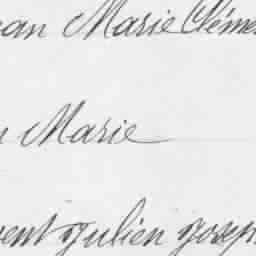 ean Marie Clémen
n Marie
vent Julien Joseph